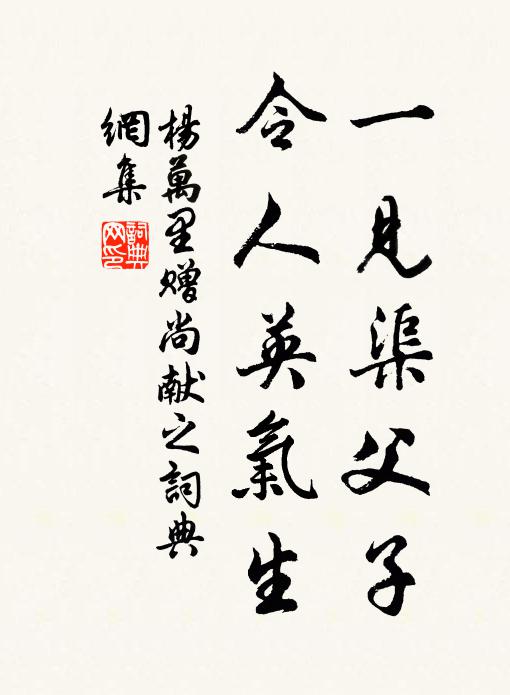 一見渠父子
令人英氣生
楊萬里贈尚献之詞典
網集
詞典网印